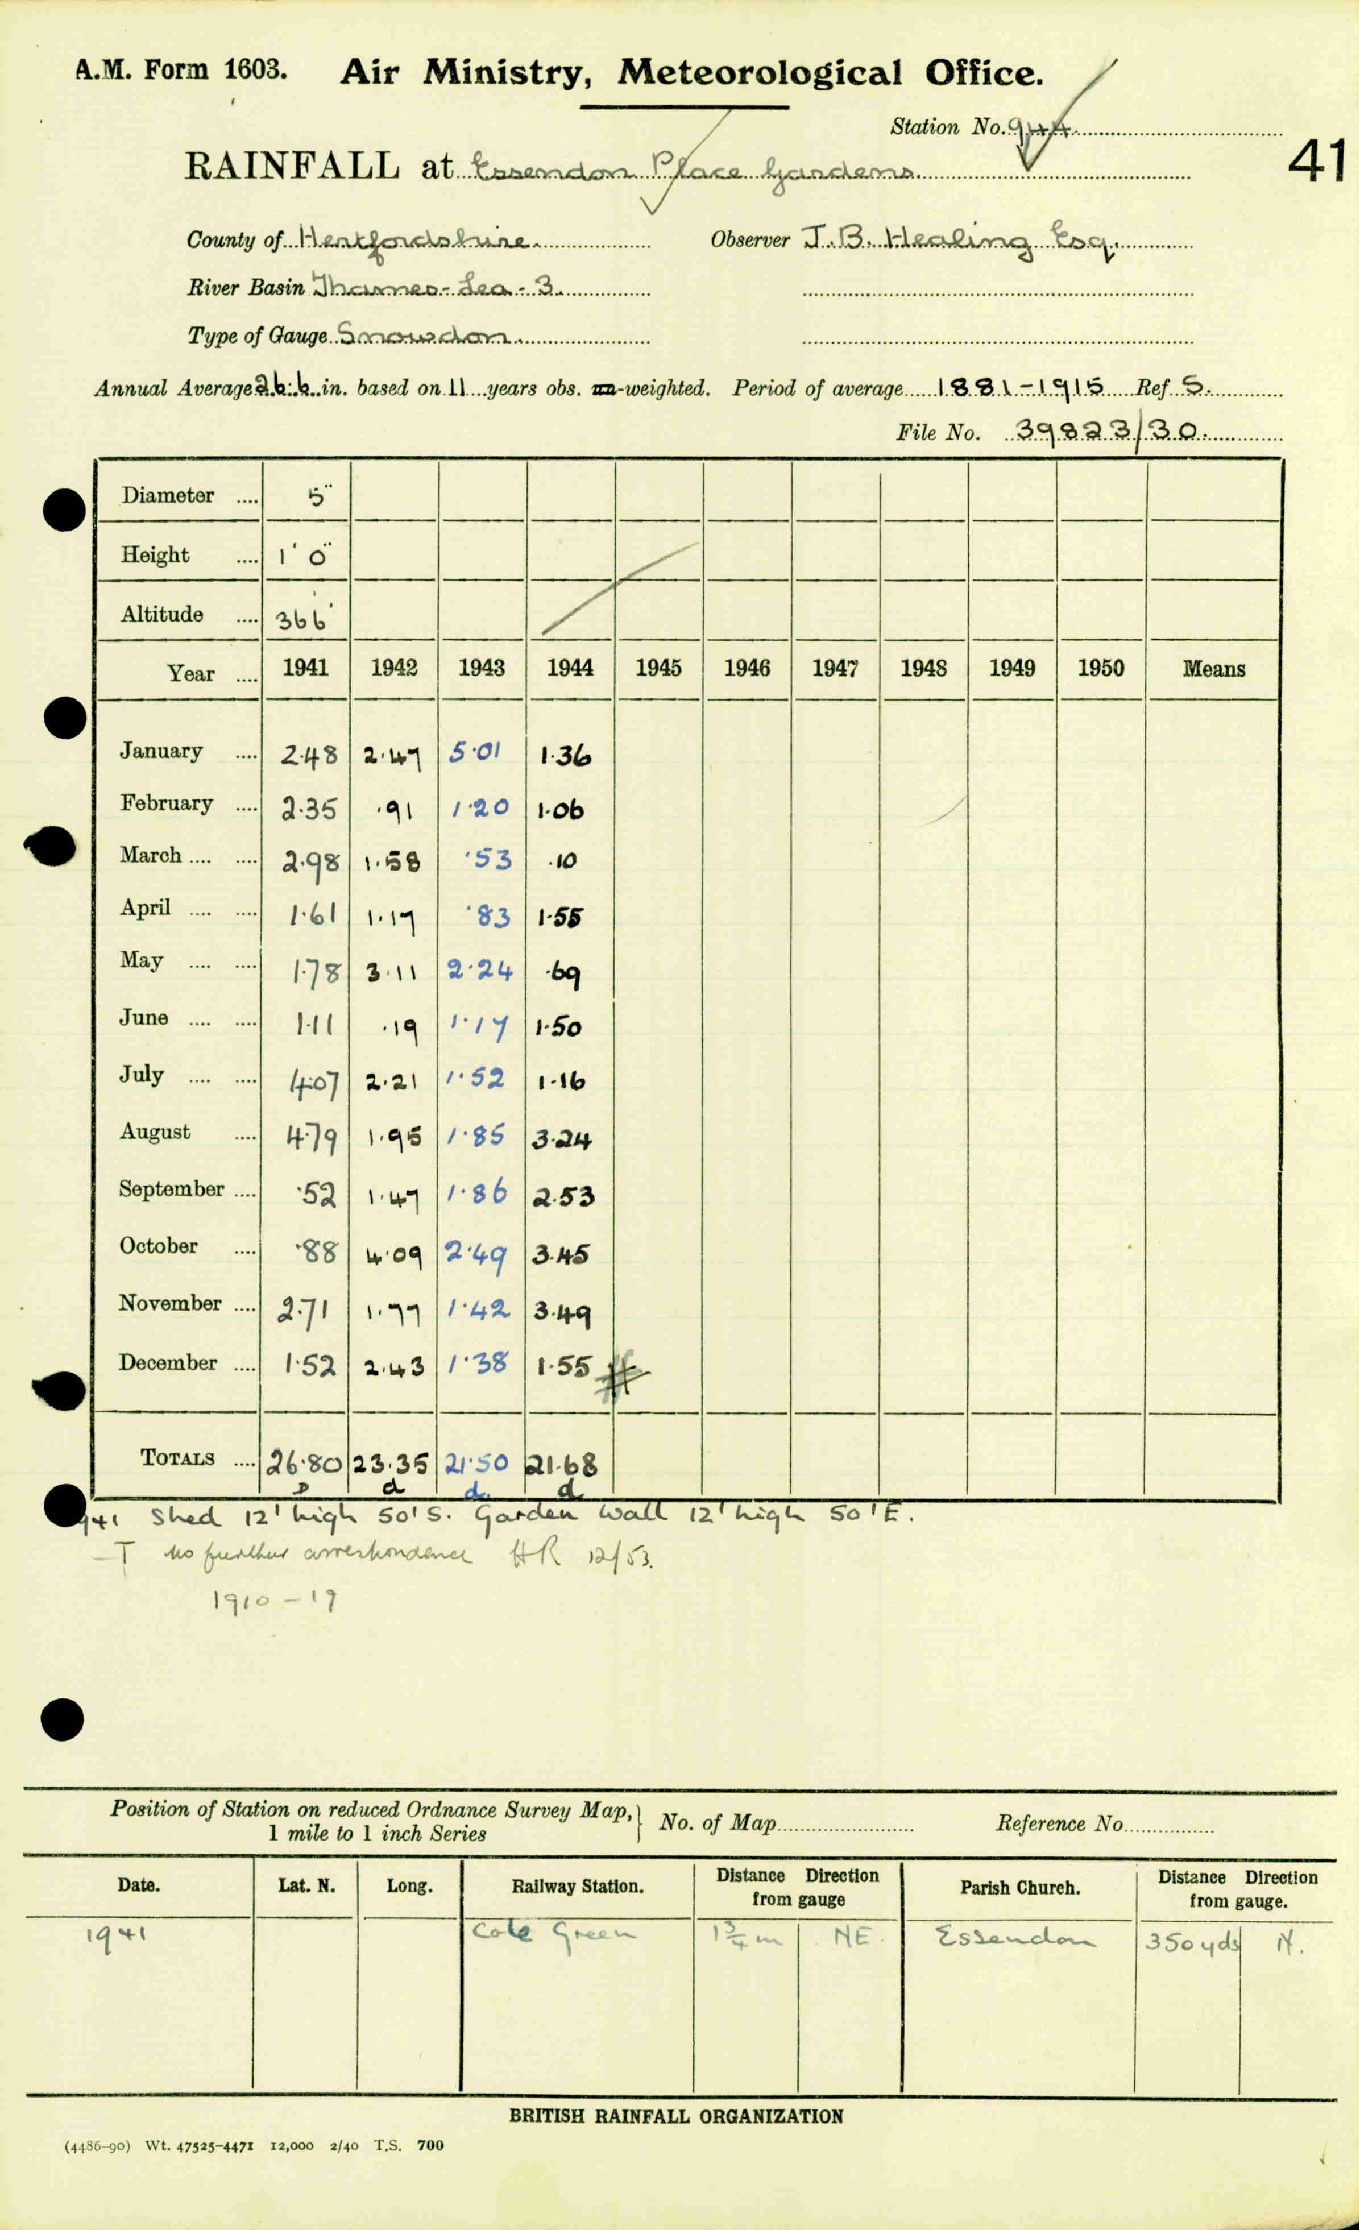 A.M. Form 1603. Air Ministry, Meteorological Office.
Station No. 944
41
RAINFALL at Essendon Place Gardens
County of Hertfordshire. Observer J.B. Healing Esq.
River Basin Thames-Lea-3
Type of Gauge Snowdon
Annual Average 26.6 in. based on 11 years obs. un-weighted. Period of average 1881-1915 Ref S.
File No. 39823/30
Diameter .... 5"
Height .... 1' 0"
Altitude .... 366'
Year .... 1941 1942 1943 1944 1945 1946 1947 1948 1949 1950 Means
January .... 2.48 2.47 5.01 1.36
February .... 2.35 .91 1.20 1.06
March .... .... 2.98 1.58 .53 .10
April .... .... 1.61 1.17 .83 1.55
May .... .... 1.78 3.11 2.24 .69
June .... .... 1.11 .19 1.17 1.50
July .... .... 4.07 2.21 1.52 1.16
August .... 4.79 1.95 1.85 3.24
September .... .52 1.47 1.86 2.53
October .... .88 4.09 2.49 3.45
November .... 2.71 1.77 1.42 3.49
December .... 1.52 2.43 1.38 1.55
TOTALS .... 26.80 23.35 21.50 21.68
D d d. d.
1941 Shed 12' high 50' S. Garden Wall 12' high 50' E.
-T No further correspondence HR 12/53.
1910-19
Position of Station on reduced Ordnance Survey Map, } No. of Map Reference No.
1 mile to 1 inch Series
Date. Lat. N. Long. Railway Station. Distance Direction from gauge Parish Church. Distance Direction from gauge.
1941 Cole Green 1¾ m NE. Essendon 350 yds N.
BRITISH RAINFALL ORGANIZATION
(4486-90) Wt. 47525-4471 12,000 2/40 T.S. 700